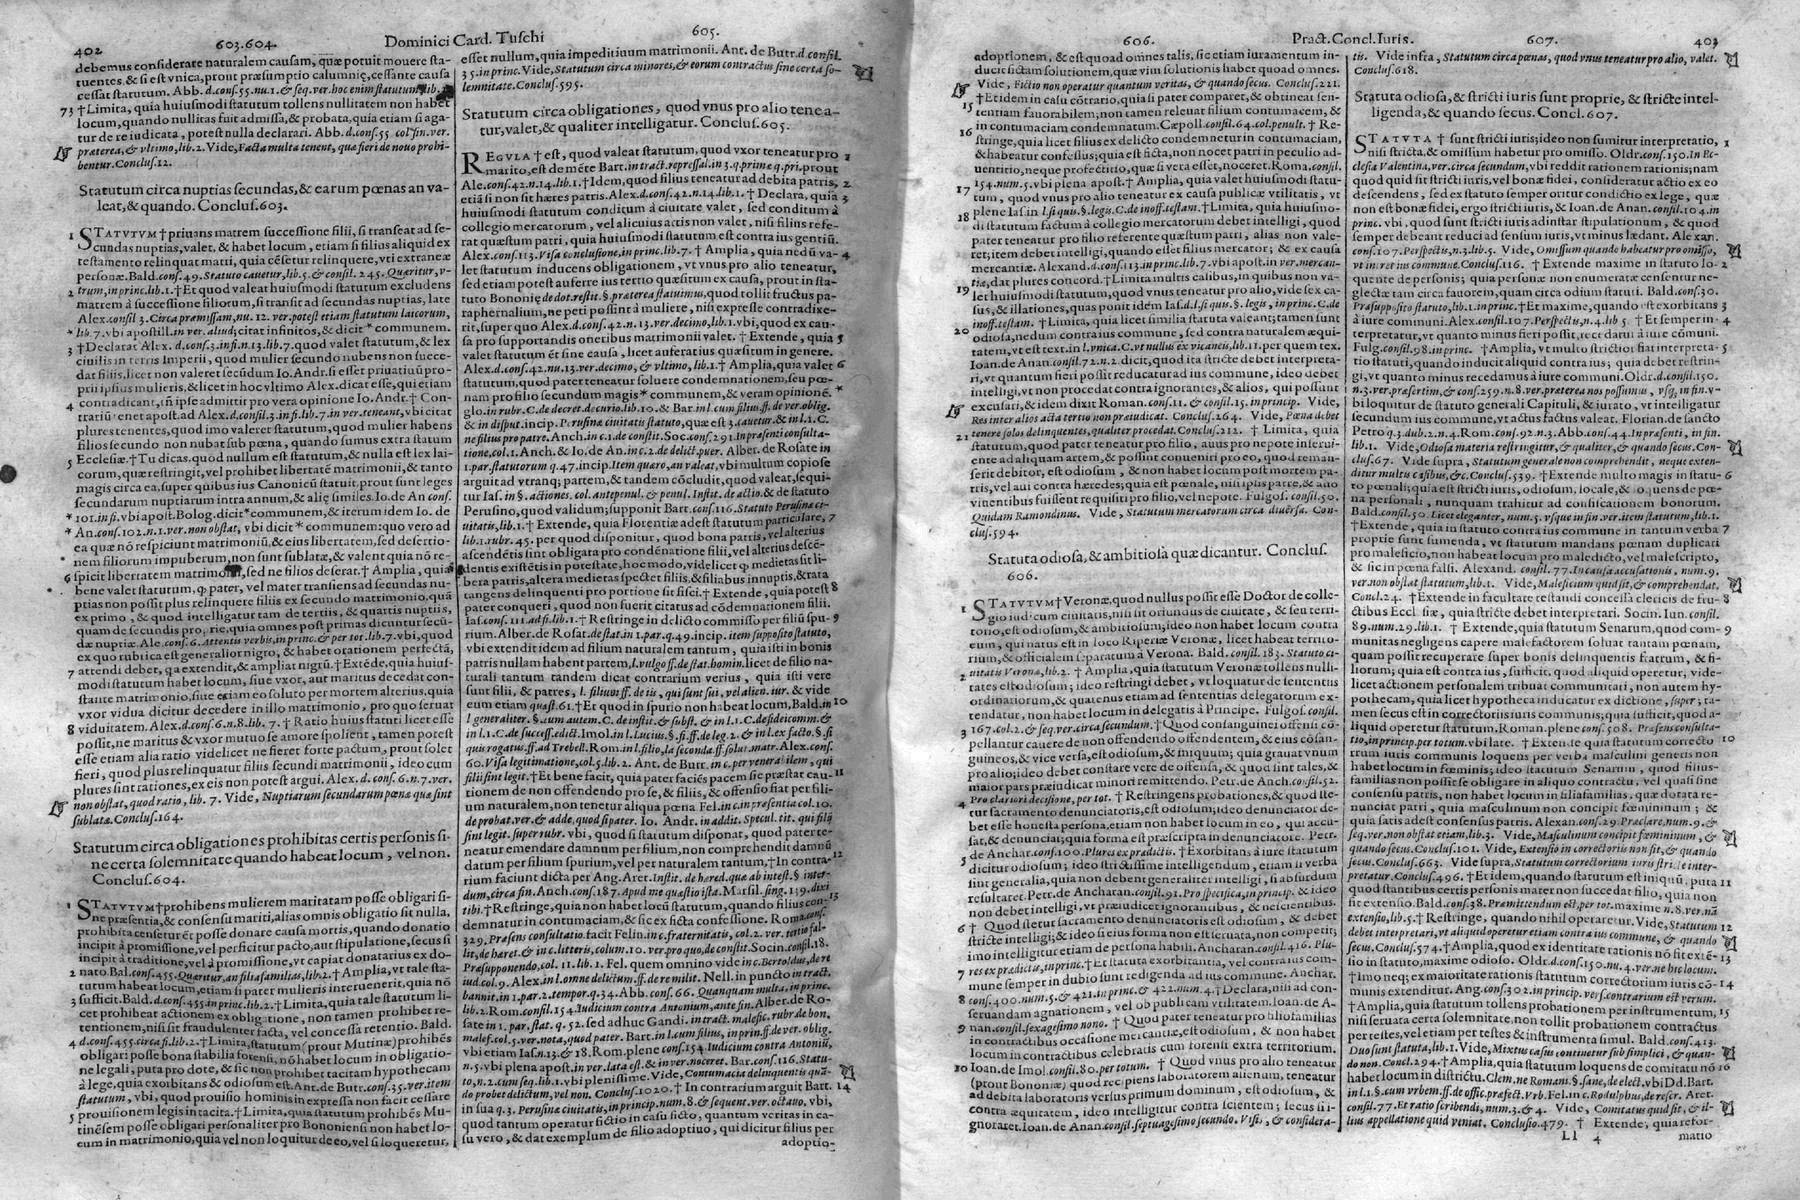 402
603.604.
Dominici Card. Tuschi
605.
debemus considerate naturalem causam, quæ potuit mouere sta-
tuentes, & si est vnica, prout præsumptio calumniæ, cessante causa
cessat statutum. Abb. d. cons. 55. nu. 1. & seq. ver. hoc enim statutum, lib.
73 †Limita, quia huiusmodi statutum tollens nullitatem non habet
locum, quando nullitas fuit admissa, & probata, quia etiam si aga-
tur de re iudicata, potest nulla declarari. Abb. d. cons. 55. col. fin. ver.
præterea, & vltimo, lib. 2. Vide, Facta multa tenent, quæ fieri de nouo prohi-
bentur. Conclus. 12.
Statutum circa nuptias secundas, & earum pœnas an va-
leat, & quando. Conclus. 603.
1 STATVTVM † priuans matrem successione filii, si transeat ad se-
cundas nuptias, valet, & habet locum, etiam si filius aliquid ex
testamento relinquat matri, quia cẽsetur relinquere, vti extraneæ
personæ. Bald. cons. 49. Statuto cauetur, lib. 5. & consil. 245. Quæritur, v-
2 trum, in princ. lib. 1. † Et quod valeat huiusmodi statutum excludens
matrem à successione filiorum, si transit ad secundas nuptias, late
Alex. consil 3. Circa præmissam, nu. 12. ver. potest etiam statutum laicorum,
* lib. 7. vbi apostill. in ver. aliud; citat infinitos, & dicit * communem.
3 † Declarat Alex. d. cons. 3. in fi. n. 13. lib. 7. quod valet statutum, & lex
ciuilis in terris Imperii, quod mulier secundo nubens non succe-
dat filiis, licet non valeret secũdum Io. Andr. si esset priuatiuũ pro-
prii ipsius mulieris, & licet in hoc vltimo Alex. dicat esse, qui etiam
4 contradicant, in ipse admittit pro vera opinione Io. Andr. † Con-
trariũ tenet apost. ad Alex. d. consil. 3. in fi. lib. 7. in ver. teneant, vbi citat
plures tenentes, quod imo valeret statutum, quod mulier habens
filios secundo non nubat sub pœna, quando sumus extra statum
5 Ecclesiæ. † Tu dicas, quod nullum est statutum, & nulla est lex lai-
corum, quæ restringit, vel prohibet libertatẽ matrimonii, & tanto
magis circa ea, super quibus ius Canonicũ statuit, prout sunt leges
secundarum nuptiarum intra annum, & aliæ similes. Io. de An cons.
* 101. in fi. vbi apost. Bolog. dicit * communem, & iterum idem Io. de
* An. cons. 102. n. 1. ver. non obstat, vbi dicit * communem: quo vero ad
ea quæ nõ respiciunt matrimoniũ, & eius libertatem, sed desertio-
nem filiorum impuberum, non sunt sublatæ, & valent quia nõ re-
6 spicit libertatem matrimonii, sed ne filios deserat. † Amplia, quia
bene valet statutum, qđ pater, vel mater transiens ad secundas nu-
ptias non possit plus relinquere filiis ex secundo matrimonio, quã
ex primo, & quod intelligatur tam de tertiis, & quartis nuptiis,
quam de secundis propterie, quia omnes post primas dicuntur secũ-
dæ nuptiæ. Ale. cons. 6. Attentis verbis, in princ. & per tot. lib. 7. vbi, quod
ex quo rubrica est generalior nigro, & habet orationem perfectã,
7 attendi debet, qa extendit, & ampliat nigrũ. † Extẽde, quia huius-
modi statutum habet locum, siue vxor, aut maritus decedat con-
stante matrimonio, siue etiam eo soluto per mortem alterius, quia
vxor vidua dicitur decedere in illo matrimonio, pro quo seruat
8 viduitatem. Alex. d. cons. 6. n. 8. lib. 7. † Ratio huius statuti licet esse
possit, ne maritus & vxor mutuo se amore spolient, tamen potest
esse etiam alia ratio videlicet ne fieret forte pactum, prout solet
fieri, quod plus relinquatur filiis secundi matrimonii, ideo cum
plures sint rationes, ex eis non potest argui. Alex. d. cons. 6. n. 7. ver.
non obstat, quod ratio, lib. 7. Vide, Nuptiarum secundarum pœnæ quæ sint
sublatæ. Conclus. 164.
Statutum circa obligationes prohibitas certis personis si-
ne certa solemnitate quando habeat locum, vel non.
Conclus. 604.
1 STATVTVM † prohibens mulierem maritatam posse obligari si-
ne præsentia, & consensu mariti, alias omnis obligatio sit nulla,
prohibita censetur et posse donare causa mortis, quando donatio
incipit à promissione, vel perficitur pacto, aut stipulatione, secus si
incipit à traditione, vel à promissione, vt capiat donatarius ex do-
2 nato Bal. cons. 455. Quæritur, an filia familias, lib. 2. † Amplia, vt tale sta-
tutum habeat locum, etiam si pater mulieris interuenerit, quia nõ
3 sufficit. Bald. d. cons. 455. in princ. lib. 2. † Limita, quia tale statutum li-
cet prohibeat actionem ex obligatione, non tamen prohibet re-
tentionem, nisi sit fraudulenter facta, vel concessa retentio. Bald.
4 d. cons. 455. circa fi. lib. 2. † Limita, statutum (prout Mutinæ) prohibẽs
obligari posse bona stabilia forensi, nõ habet locum in obligatio-
ne legali, puta pro dote, & sic non prohibet tacitam hypothecam
à lege, quia exorbitans & odiosum est. Ant. de Butr. cons. 35. ver. item
statutum, vbi, quod prouisio hominis in expressa non facit cessare
5 prouisionem legis in tacita. † Limita, quia statutum prohibẽs Mu-
tinẽsem posse obligari personaliter pro Bononiensi non habet lo-
cum in matrimonio, quia vel non loquitur de eo, vel si loqueretur,
esset nullum, quia impeditiuum matrimonii. Ant. de Butr. d. consil.
35. in princ. Vide, Statutum circa minores, & eorum contractus sine certa so-
lemnitate. Conclus. 595.
Statutum circa obligationes, quod vnus pro alio tenea-
tur, valet, & qualiter intelligatur. Conclus. 605.
REGVLA † est, quod valeat statutum, quod vxor teneatur pro 1
marito, est de mẽte Bart. in tract. repressal. in 3. q. prime q. pri. prout
Ale. cons. 42. n. 14. lib. 1. † Idem, quod filius teneatur ad debita patris, 2
etiã si non sit hæres patris. Alex. d. cons. 42. n. 14. lib. 1. † Declara, quia 3
huiusmodi statutum conditum à ciuitate valet, sed conditum à
collegio mercatorum, vel alicuius actis non valet, nisi filius refe-
rat quæstum patri, quia huiusmodi statutum est contra ius gentiũ.
Alex. cons. 113. Visa conclusione, in princ. lib. 7. † Amplia, quia nedũ va- 4
let statutum inducens obligationem, vt vnus pro alio teneatur,
sed etiam potest auferre ius tertio quæsitum ex causa, prout in sta-
tuto Bononiẽ de dot. restit. §. præterea statuimus, quod tollit fructus pa-
raphernalium, ne peti possint à muliere, nisi expresse contradixe-
rit, super quo Alex. d. cons. 42. n. 13. ver. decimo, lib. 1. vbi, quod ex cau-
sa pro supportandis oneribus matrimonii valet. † Extende, quia 5
valet statutum ẽt sine causa, licet auferatius quæsitum in genere.
Alex. d. cons. 42. nu. 13. ver. decimo, & vltimo, lib. 1. † Amplia, quia valet 6
statutum, quod pater teneatur soluere condemnationem, seu pœ-
nam pro filio secundum magis * communem, & veram opinionẽ. *
glo. in rubr. C. de decret. decurio. lib. 10. & Bar. in l. cum filius. ff. de ver. oblig.
& in disput. incip. Perusino ciuitatis statuto, quæ est 3. cauetur. & in l. 1. C.
ne filius pro patre. Anch. in c. 1. de constit. Soc. cons. 291. In præsenti consulta-
tione, col. 1. Anch. & Io. de An. in c. 2. de delict. puer. Alber. de Rosate in
1. par. statutorum q. 47. incip. Item quæro, an valeat. vbi multum copiose
arguit ad vtranq; partem, & tandem cõcludit, quod valeat, sequi-
tur Ias. in §. actiones. col. antepenul. & penul. Instit. de actio. & de statuto
Perusino, quod validum; supponit Bart. cons. 116. Statuto Perusina ci-
uitatis, lib. 1. † Extende, quia Florentiæ adest statutum particulare, 7
lib. 1. rubr. 45. per quod disponitur, quod bona patris, vel alterius
ascendẽtis sint obligata pro condẽnatione filii, vel alterius descẽ-
dentis existẽtis in potestate, hoc modo, videlicet qđ medietas sit li-
bera patris, altera medietas spectet filiis, & filiabus innuptis, & rata
tangens delinquenti pro portione sit fisci. † Extende, quia potest 8
pater conqueri, quod non fuerit citatus ad cõdemnationem filii.
Ias. cons. 111. ad fi. lib. 1. † Restringe in delicto commisso per filiũ spu- 9
rium. Alber. de Rosat. de stat. in 1. par. q. 49. incip. item supposito statuto,
vbi extendit idem ad filium naturalem tantum, quia isti in bonis
patris nullam habent partem, l. vulgo ff. de stat. homin. licet de filio na-
turali tantum tandem dicat contrarium verius, quia isti vere
sunt filii, & patres, l. filium ff. de iis, qui sunt sui, vel alien. iur. & vide
eum etiam quæst. 61. † Et quod in spurio non habeat locum, Bald. in 10
l generaliter. §. cum autem. C. de instit. & subst. & in l. 1. C. de fideicomm. &
in l. 1. C. de success. edict. Imol. in l. Lucius. §. si. ff. de leg. 2. & in l. ex facto. §. si
quis rogatus. ff. ad Trebell. Rom. in l. filio, la seconda. ff. solut. matr. Alex. cons.
60. Visa legitimatione, col. 5. lib. 2. Ant. de Butr. in c. per venerabilem, qui
filii sint legit. † Et bene facit, quia pater faciẽs pacem sic præstat cau- 11
tionem de non offendendo pro se, & filiis, & offensio fiat per fili-
um naturalem, non tenetur aliqua pœna Fel. in c. in præsentia col. 10.
de probat. ver. & adde, quod si pater. Io. Andr. in addit. Specul. tit. qui filii
sint legit. super rubr. vbi, quod si statutum disponat, quod pater te-
neatur emendare damnum per filium, non comprehendit damnũ
datum per filium spurium, vel per naturalem tantum, † In contra- 12
rium faciunt dicta per Ang. Aret. Instit. de hæred. quæ ab intest. §. inter-
dum, circa fin. Anch. cons. 187. Apud me quæstio ista. Marsil. sing. 159. dixi
tibi. † Restringe, quia non habet locũ statutum, quando filius con- 13
demnatur in contumaciam, & sic ex ficta confessione. Roma. cons.
329. Præsens consultatio. facit Felin. in c. fraternitatis, col. 2. ver. tertio fal-
lit, de hæret. & in c. litteris, colum. 10. ver. pro quo, de constit. Socin. consil. 18.
Præsupponendo, col. 11. lib. 1. Fel. quem omnino vide in c. Bertoldus, de re
iud. col. 9. Alex. in l. omne delictum. ff. de re milit. Nell. in puncto in tract.
bannit. in 1. par. 2. tempor. q. 34. Abb. cons. 66. Quanquam multa, in princ.
lib. 2. Rom. consil. 154. Iudicium contra Antonium, ante fin. Alber. de Ro-
sate in 1. par. stat. q. 52. sed adhuc Gandi. in tract. malefic. rubr. de bon.
malef. col. 5. ver. nota, quod pater. Bart. in l. cum filius, in prin. ff. de ver. oblig.
vbi etiam Ias. n. 13. & 18. Rom. plene cons. 154. Iudicium contra Antoniũ,
n. 5. vbi plena apost. in ver. lata est. & in ver. noceret. Bar. cons. 116. Statu-
to, n. 2. cum seq. lib. 1. vbi plenissime. Vide, Contumacia delinquentis quã-
do probet delictum, vel non. Conclus. 1020. † In contrarium arguit Bart. 14
in sua q. 3. Perusinæ ciuitatis, in princip. num. 8. & sequent. ver. octauo, vbi,
quod tantum operatur fictio in casu ficto, quantum veritas in ca-
su vero, & dat exemplum de filio adoptiuo, qui dicitur filius per
adoptio-
606.
Pract. Concl. Iuris.
607.
403
adoptionem, & est quoad omnes talis, sic etiam iuramentum in-
ducit fictam solutionem, quæ vim solutionis habet quod omnes.
Vide, Fictio non operatur quantum veritas, & quando secus. Conclus. 221.
15 † Et idem in casu cõtrario, quia si pater comparet, & obtineat sen-
tentiam fauorabilem, non tamen releuat filium contumacem, &
16 in contumaciam condemnatum. Cæpoll. consil. 64. col. penult. † Re-
stringe, quia licet filius ex delicto condemnetur in contumaciam,
& habeatur confessus; quia est ficta, non nocet patri in peculio ad-
uentitio, neque profectitio, quæ si vera esset, noceret. Roma. consil.
17 154. num. 5. vbi plena apost. † Amplia, quia valet huiusmodi statu-
tum, quod vnus pro alio teneatur ex causa publicæ vtilitatis, vt
18 plene Ias. in l. si quis. §. legis. C. de inoff. testam. † Limita, quia huiusmo-
di statutum factum à collegio mercatorum debet intelligi, quod
pater teneatur pro filio referente quæstum patri, alias non vale-
ret; item debet intelligi, quando esset filius mercator; & ex causa
mercantiæ. Alexand. d. cons. 113. in princ. lib. 7. vbi apost. in ver. mercan-
tiæ, dat plures concord. † Limita in multis casibus, in quibus non va-
19 let huiusmodi statutum, quod vnus teneatur pro alio, vide sex ca-
sus, & illationes, quas ponit idem Ias. d. l. si quis. §. legis, in princ. C. de
20 inoff. testam. † Limita, quia licet similia statuta valeant; tamen sunt
odiosa, nedum contra ius commune, sed contra naturalem æqui-
tatem, vt est text. in l. vnica. C. vt nullus ex vicaneis, lib. 11. per quem tex.
Ioan. de Anan. cons. 72. n. 2. dicit, quod ita stricte debet interpreta-
ri, vt quantum fieri possit reducatur ad ius commune, ideo debet
intelligi, vt non procedat contra ignorantes, & alios, qui possunt
excusari, & idem dixit Roman. cons. 11. & consil. 15. in princip. Vide,
Res inter alios acta tertio non præiudicat. Conclus. 264. Vide, Pœna debet
tenere solos delinquentes, qualiter procedat. Conclus. 212. † Limita, quia
21 statutum, quod pater teneatur pro filio, auus pro nepote inserui-
ente ad aliquam artem, & possint conueniri pro eo, quod reman-
serit debitor, est odiosum, & non habet locum post mortem pa-
tris, vel aui contra hæredes; quia est pœnale, nisi ipsis patre, & auo
viuentibus fuissent requisiti pro filio, vel nepote. Fulgos. consil. 50.
Quidam Ramondinus. Vide, Statutum mercatorum circa diuersa. Con-
clus. 594.
Statuta odiosa, & ambitiosa quæ dicantur. Conclus.
606.
1 STATVTVM † Veronæ, quod nullus possit esse Doctor de colle-
gio iudicum ciuitatis, nisi sit oriundus de ciuitate, & seu terri-
torio, est odiosum, & ambitiosum; ideo non habet locum contra
eum, qui natus est in loco Riperiæ Veronæ, licet habeat territo-
rium, & officialem separatum a Verona. Bald. consil. 183. Statuto ci-
2 uitatis Verona, lib. 2. † Amplia, quia statutum Veronæ tollens nulli-
tates est odiosum; ideo restringi debet, vt loquatur de sententiis
ordinariorum, & quatenus etiam ad sententias delegatorum ex-
tendatur, non habet locum in delegatis à Principe. Fulgos. consil.
3 167. col. 2. & seq. ver. circa secundum. † Quod consanguinei offensi cõ-
pellantur cauere de non offendendo offendentem, & eius cõsan-
guineos, & vice versa, est odiosum, & iniquum; quia grauat vnum
pro alio; ideo debet constare vere de offensa, & quod sint tales, &
maior pars præiudicat minori remittendo. Petr. de Anch. consil. 52.
4 Pro clariori decisione, per tot. † Restringens probationes, & quod ste-
tur sacramento denunciatoris, est odiosum; ideo denunciator de-
bet esse honesta persona, etiam non habet locum in eo, qui accu-
sat, & denunciat; quia forma est præscripta in denunciatore. Petr.
5 de Anchar. cons. 100. Plures ex prædictis. † Exorbitans à iure statutum
dicitur odiosum; ideo stricissime intelligendum, etiam si verba
sint generalia, quia non debent generaliter intelligi, si absurdum
resultaret. Petr. de Ancharan. consil. 91. Pro specifica, in princip. & ideo
non debet intelligi, vt præiudicet ignorantibus, & nescientibus.
6 † Quod stetur sacramento denunciatoris est odiosum, & debet
stricte intelligi; & ideo si eius forma non est seruata, non competit;
imo intelligitur etiam de persona habili. Ancharan. consil. 416. Plu-
7 res ex prædictis, in princ. † Et statuta exorbitantia, vel contra ius com-
mune semper in dubio sunt redigenda ad ius commune. Anchar.
8 cons. 400. num. 5. & 421. in princ. & 422. num. 4. † Declara, nisi ad con-
seruandam agnationem, vel ob publicam vtilitatem. Ioan. de A-
9 nan. consil. sexagesimo nono. † Quod pater teneatur pro filiofamilias
in contractibus occasione mercantiæ, est odiosum, & non habet
locum in contractibus celebratis cum forensi extra territorium.
10 Ioan. de Imol. consil. 80. per totum. † Quod vnus pro alio teneatur
(prout Bononiæ) quod recipiens laboratorem alienum, teneatur
ad debita laboratoris versus primum dominum, est odiosum, &
contra æquitatem, ideo intelligitur contra scientem; secus si i-
gnoraret. Ioan. de Anan. consil. septuagesimo secundo. Visis, & considera-
tis. Vide infra, Statutum circa pœnas, quod vnus teneatur pro alio, valet.
Conclus. 618.
Statuta odiosa, & stricti iuris sunt proprie, & stricte intel-
ligenda, & quando secus. Concl. 607.
STATVTA † sunt stricti iuris; ideo non sumitur interpretatio, 1
nisi stricta, & omissum habetur pro omisso. Oldr. cons. 150. In Ec-
clesia Valentina, ver. circa secundum, vbi reddit rationem rationis; nam
quod quid sit stricti iuris, vel bonæ fidei, consideratur actio ex eo
descendens, sed ex statuto semper oritur condictio ex lege, quæ
non est bonæ fidei, ergo stricti iuris, & Ioan. de Anan. consil. 104. in
princ. vbi, quod sunt stricti iuris ad instar stipulationum, & quod
semper debeant reduci ad sensum iuris, vt minus lædant. Alexan.
cons. 107. Perspectis, n. 3. lib. 5. Vide, Omissum quando habeatur pro omisso,
vt in ret ius commune. Conclus. 116. † Extende maxime in statuto lo- 2
quente de personis; quia personæ non enumeratæ censentur ne-
glectæ tam circa fauorem, quam circa odium statuti. Bald. cons. 30.
Præsupposito statuto, lib. 1. in princ. † Et maxime, quando est exorbitans 3
à iure communi. Alex. consil. 107. Perspectis, n. 4. lib 5. † Et semper in- 4
terpretatur, vt quanto minus fieri possit, recedatur à iure cõmuni.
Fulg. consil. 98. in princ. † Amplia, vt multo strictior fiat interpreta- 5
tio statuti, quando inducit aliquid contra ius; quia debet restrin-
gi, vt quanto minus recedamus à iure communi. Oldr. d. cons. 150.
n. 3. ver. præsertim, & cons. 259. n. 8. ver. præterea nos possumus, vsq; in fin. v-
bi loquitur de statuto generali Capituli, & iurato, vt intelligatur
secundum ius commune, vt actus factus valeat. Florian. de sancto
Petro q. 3. dub. 2. n. 4. Rom. cons. 92. n. 3. Abb. cons. 44. In præsenti, in fin.
lib. 1. Vide, Odiosa materia restringitur, & qualiter, & quando secus. Con-
clus. 67. Vide supra, Statutum generale non comprehendit, neque exten-
ditur multis casibus, &c. Conclus. 539. † Extende multo magis in statu- 6
to pœnali; quia est stricti iuris, odiosum, locale, & loquens de pœ-
na personali, nunquam trahitur ad confiscationem bonorum.
Bald. consil. 50. Licet eleganter, num. 5. vsque in fin. ver. item statutum, lib. 1.
† Extende, quia in statuto contra ius commune in tantum verba 7
proprie sunt sumenda, vt statutum mandans pœnam duplicari
pro maleficio, non habeat locum pro maledicto, vel malescripto,
& sic in pœna falsi. Alexand. consil. 77. In causa accusationis, num. 9.
ver. non obstat statutum, lib. 1. Vide, Maleficium quid sit, & comprehendat.
Concl. 24. † Extende in facultate restandi concessa clericis de fru- 8
ctibus Ecclesiæ, quia stricte debet interpretari. Socin. Iun. consil.
89. num. 29. lib. 1. † Extende, quia statutum Senarum, quod com- 9
munitas negligens capere malefactorem soluat tantam pœnam,
quam possit recuperare super bonis delinquentis fratrum, & fi-
liorum; quia est contra ius, sufficit, quod aliquid operetur, vide-
licet actionem personalem tribuat communitati, non autem hy-
pothecam, quia licet hypotheca inducatur ex dictione, super, ta-
men secus est in correctoriis iuris communis; quia sufficit, quod a-
liquid operetur statutum. Roman. plene cons. 508. Præsens consulta-
tio, in princip. per totum. vbi late. † Extende quia statutum correcto 10
trium iuris communis loquens per verba masculini generis non
habet locum in fœminis; ideo statutum Senarum, quod filius-
familias non possit se obligare in aliquo contractu, vel quasi sine
consensu patris, non habet locum in filiafamilias, quæ dotata re-
nunciat patri, quia masculinum non concipit fœmininum; &
quia satis adest consensus patris. Alexan. cons. 29. Præclare, num. 9. &
seq. ver. non obstat etiam, lib. 3. Vide, Masculinum concipit fœmininum, &
quando secus. Conclus. 101. Vide, Extensio in correctoriis non sit, & quando
secus. Conclus. 663. Vide supra, Statutum correctorium iuris stricte inter-
pretatur. Conclus. 496. † Et idem, quando statutum est iniquũ, puta 11
quod stantibus certis personis mater non succedat filio, quia non
sit extensio. Bald. cons. 38. Præmittendum est, per tot. maxime n. 8. ver. nã
extensio, lib. 5. † Restringe, quando nihil operaretur. Vide, Statutum 12
debet interpretari, vt aliquid operetur etiam contra ius commune, & quando
secus. Conclus. 574. † Amplia, quod ex identitate rationis nõ fit extẽ- 13
sio in statuto, maxime odioso. Oldr. d. cons. 150. nu. 4. ver. ne hic locum.
† Imo neq; ex maioritate rationis statutum correctorium iuris cõ- 14
munis extenditur. Ang. cons. 302. in princip. vers. contrarium est verum.
† Amplia, quia statutum tollens probationem per instrumentum, 15
nisi seruata certa solemnitate, non tollit probationem contractus
per testes, vel etiam per testes & instrumenta simul. Bald. cons. 413.
Duo sunt statuta, lib. 1. Vide, Mixtus casus continetur sub simplici, & quan-
do non. Concl. 294. † Amplia, quia statutum loquens de comitatu nõ 16
habet locum in districtu. Clem. ne Romani. §. sane, de elect. vbi Dd. Bart.
in l. 1. cum vrbem. ff. de offic. præfect. Vrb. Fel. in c. Rodulphus, de rescr. Aret.
consil. 77. Et ratio scribendi, num. 3. & 4. Vide, Comitatus quid sit, & il-
lius appellatione quid veniat. Conclusio. 479. † Extende, quia refor-
Ll 4
matio